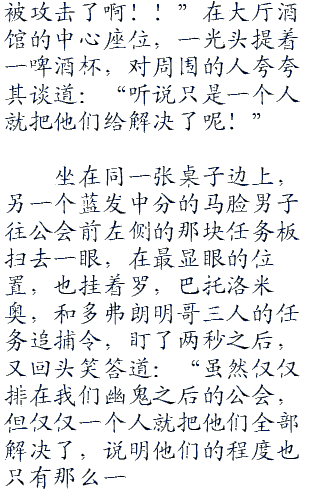 被攻击了啊！！”在大厅酒
馆的中心座位，一光头提着
一啤酒杯，对周围的人夸夸
其谈道：“听说只是一个人
就把他们给解决了呢！”
坐在同一张桌子边上，
另一个蓝发中分的马脸男子
往公会前左侧的那块任务板
扫去一眼，在最显眼的位
置，也挂着罗，巴托洛米
奥，和多弗朗明哥三人的任
务追捕令，盯了两秒之后，
又回头笑答道：“虽然仅仅
排在我们幽鬼之后的公会，
但仅仅一个人就把他们全部
解决了，说明他们的程度也
只有那么一